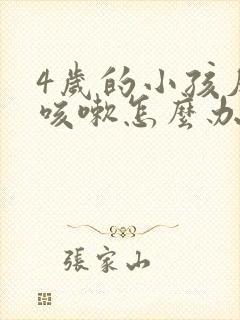 4歲的小孩
咳嗽怎麼办
張家山